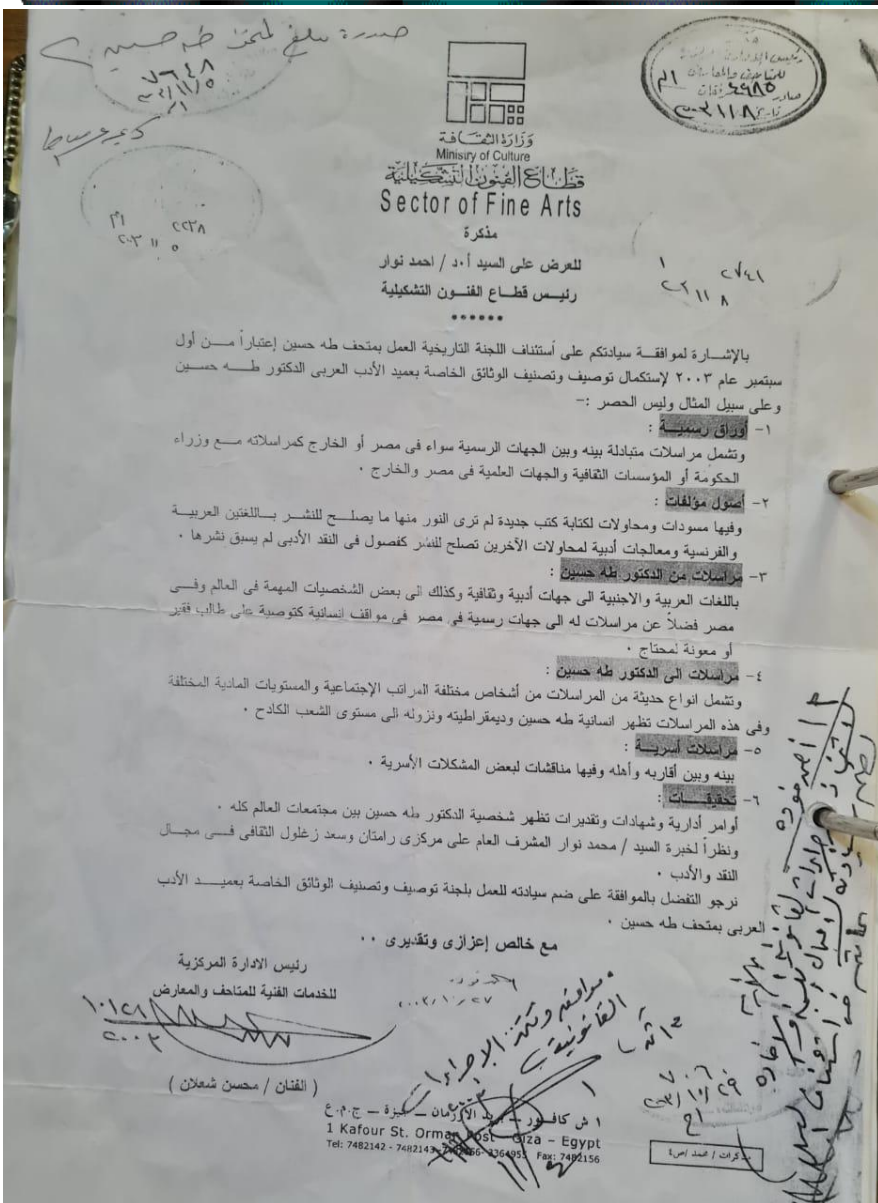 صورة مبلغ لمتحف طه حسين
٧٦٤٨
٢٠٠٣/١١/٥
للمتاحف والمعارض
صادر
٢٠٠٣/١١/٨
وزارة الثقافة
Ministry of Culture
قطاع الفنون التشكيلية
Sector of Fine Arts
٢٢٣٨
٢٠٠٣ ١١ ٥
٢٧٤١
مذكرة
للعرض على السيد أ.د / احمد نوار
رئيس قطاع الفنون التشكيلية
******
بالإشارة لموافقة سيادتكم على أستئناف اللجنة التاريخية العمل بمتحف طه حسين إعتباراً من أول
سبتمبر عام ٢٠٠٣ لإستكمال توصيف وتصنيف الوثائق الخاصة بعميد الأدب العربى الدكتور طه حسين
وعلى سبيل المثال وليس الحصر :-
١- أوراق رسمية :
وتشمل مراسلات متبادلة بينه وبين الجهات الرسمية سواء فى مصر أو الخارج كمراسلاته مع وزراء
الحكومة أو المؤسسات الثقافية والجهات العلمية فى مصر والخارج .
٢- أصول مؤلفات :
وفيها مسودات ومحاولات لكتابة كتب جديدة لم ترى النور منها ما يصلح للنشر باللغتين العربية
والفرنسية ومعالجات أدبية لمحاولات الآخرين تصلح للنشر كفصول فى النقد الأدبى لم يسبق نشرها .
٣- مراسلات من الدكتور طه حسين :
باللغات العربية والاجنبية الى جهات أدبية وثقافية وكذلك الى بعض الشخصيات المهمة فى العالم وفى
مصر فضلاً عن مراسلات له الى جهات رسمية فى مصر فى مواقف انسانية كتوصية على طالب فقير
أو معونة لمحتاج .
٤- مراسلات الى الدكتور طه حسين :
وتشمل انواع حديثة من المراسلات من أشخاص مختلفة المراتب الإجتماعية والمستويات المادية المختلفة
وفى هذه المراسلات تظهر انسانية طه حسين وديمقراطيته ونزوله الى مستوى الشعب الكادح .
٥- مراسلات أسرية :
بينه وبين أقاربه وأهله وفيها مناقشات لبعض المشكلات الأسرية .
٦- تحقيقات :
أوامر أدارية وشهادات وتقديرات تظهر شخصية الدكتور طه حسين بين مجتمعات العالم كله .
ونظراً لخبرة السيد / محمد نوار المشرف العام على مركزى رامتان وسعد زغلول الثقافى فى مجال
النقد والأدب .
نرجو التفضل بالموافقة على ضم سيادته للعمل بلجنة توصيف وتصنيف الوثائق الخاصة بعميد الأدب
العربى بمتحف طه حسين .
مع خالص إعزازى وتقديرى ..
رئيس الادارة المركزية
للخدمات الفنية للمتاحف والمعارض
( الفنان / محسن شعلان )
موافق وتتخذ الإجراءات
القانونية
١ ش كافور – بريد الأورمان – جيزة – ج.م.ع
1 Kafour St. Orman Post - Giza – Egypt
Tel: 7482142 - 7482143 - 3364955 Fax: 7482156